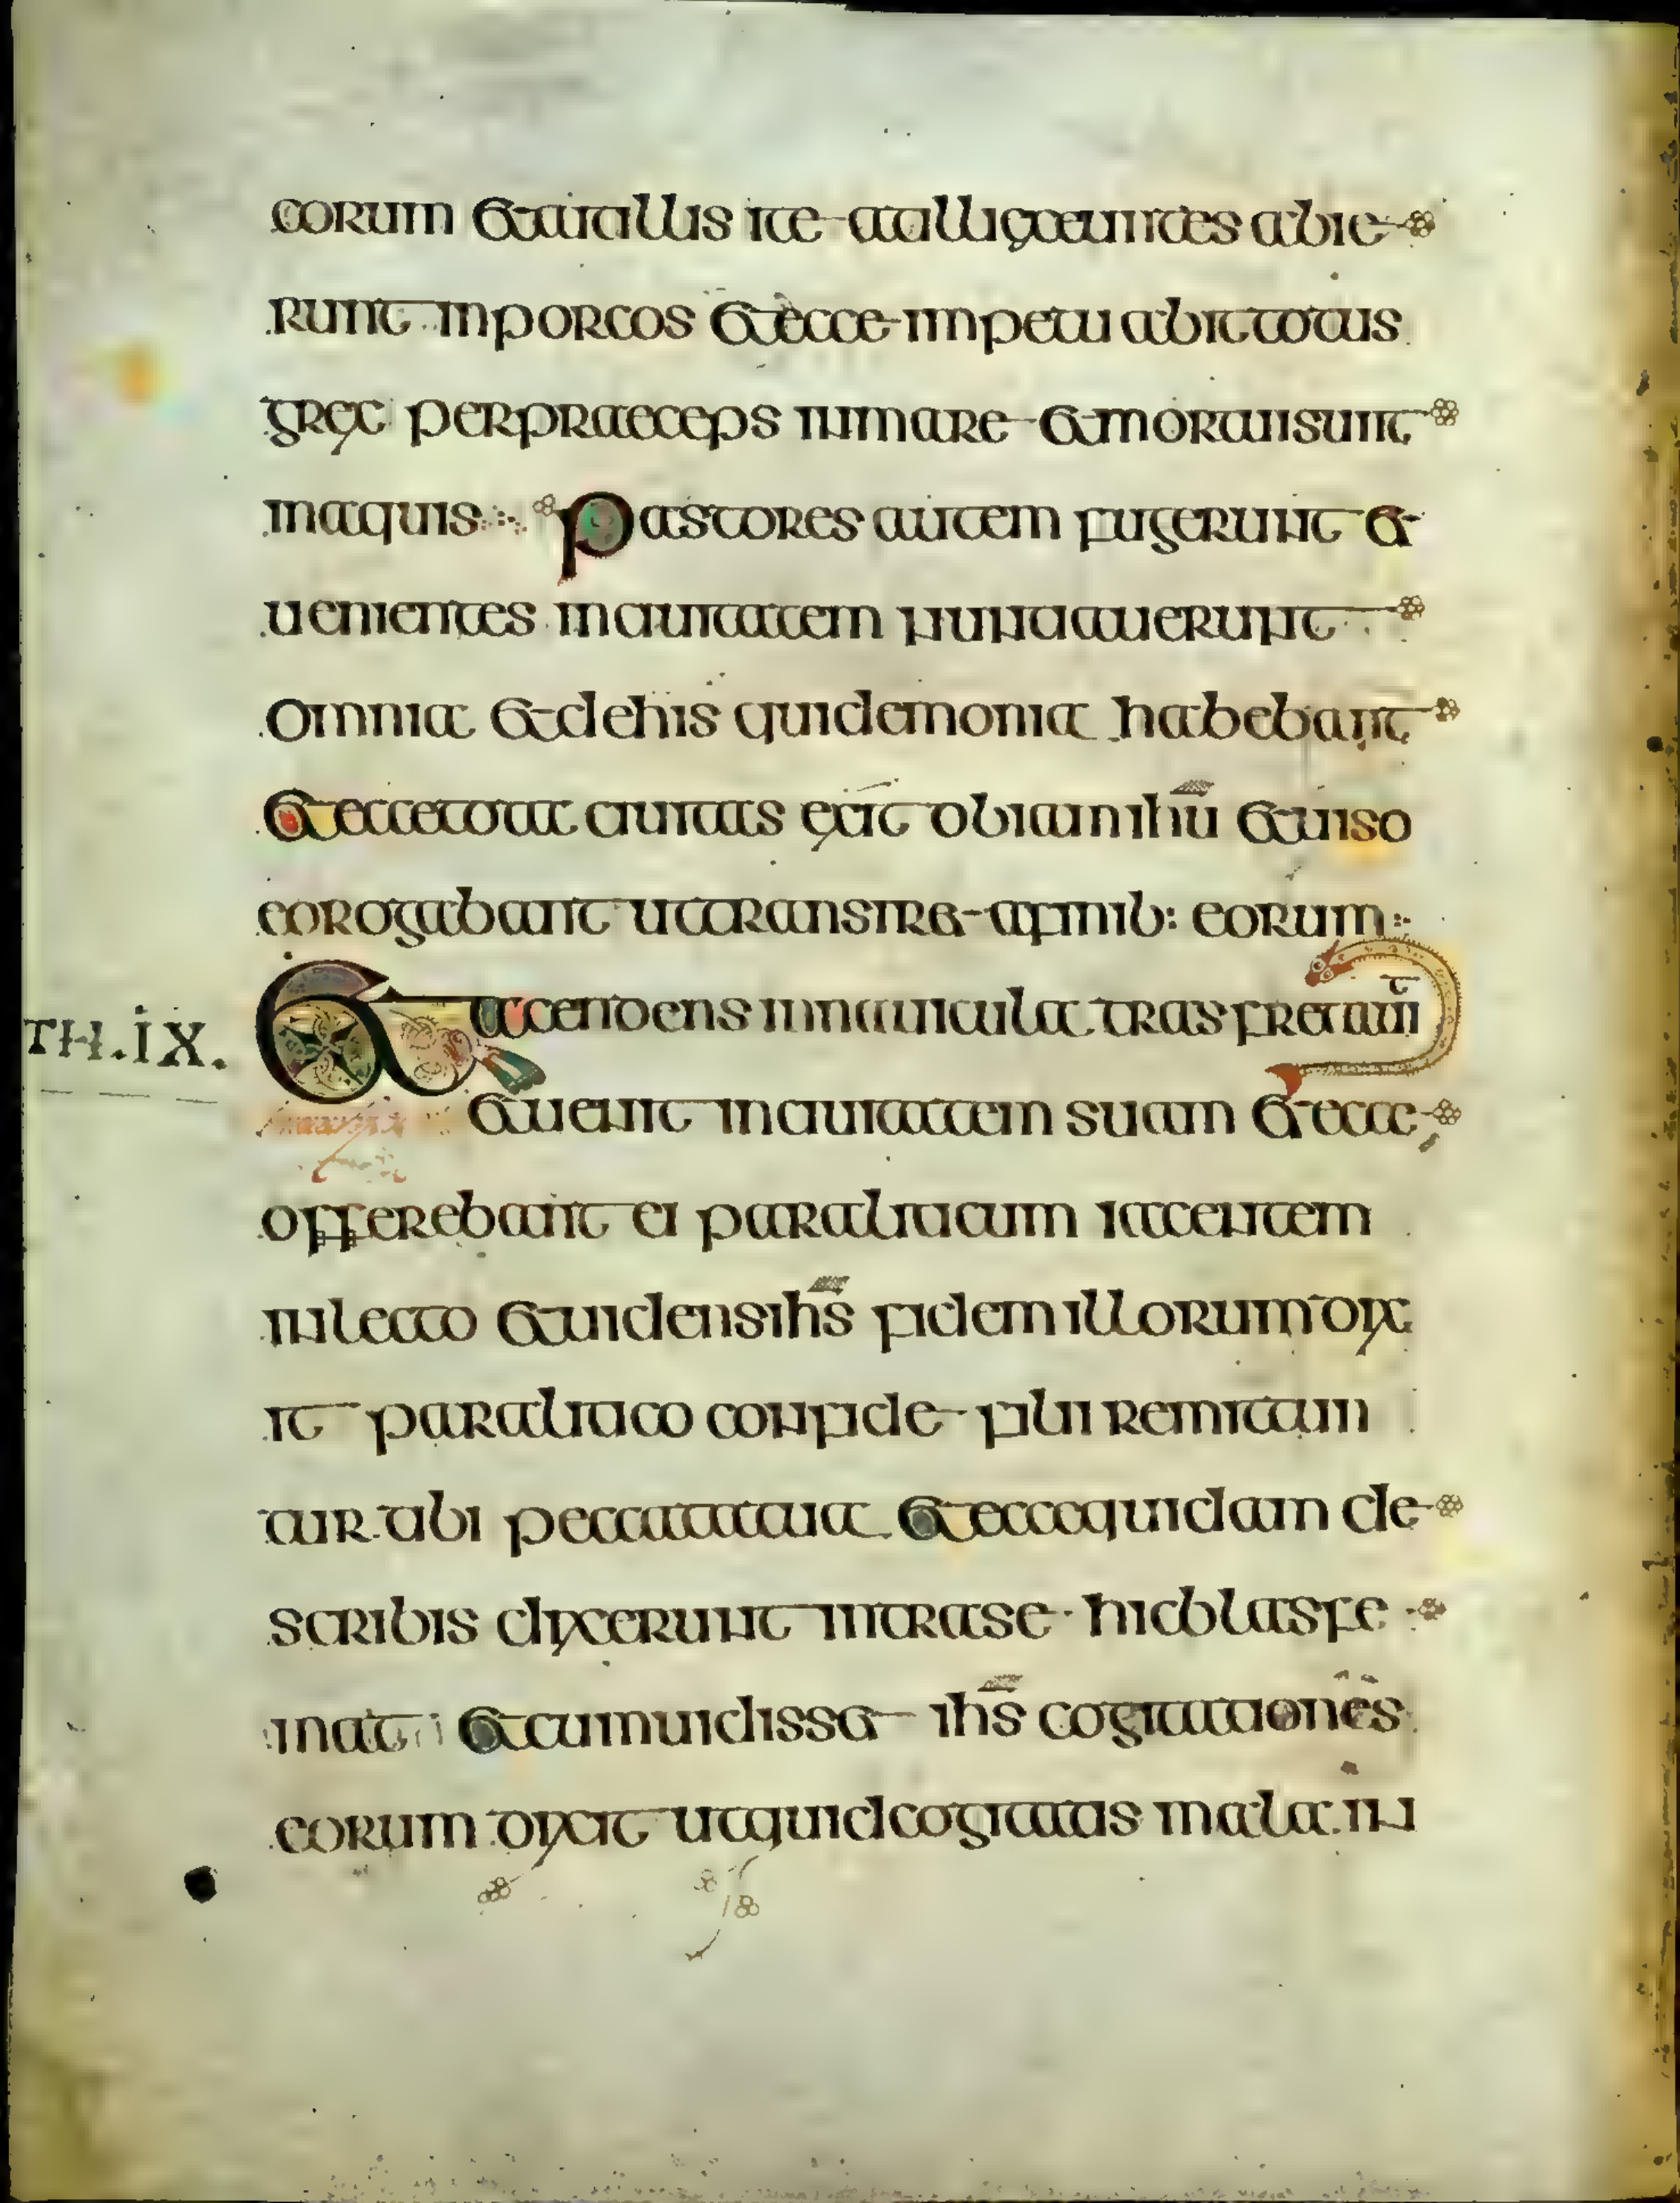 eorum et ait illis ite at illi exeuntes abie
runt in porcos et ecce impetu abiit totus
grex per praeceps in mare et mortui sunt
in aquis Pastores autem fugerunt et
uenientes in ciuitatem nuntiauerunt
omnia et de his qui demonia habebant
Et ecce tota ciuitas exiit obiam ihū et uiso
eo rogabant ut transiret a finib: eorum
TH.IX.
Et accendens in nauicula trasfretauit
et uenit in ciuitatem suam et ecce
offerebant ei paraliticum iacentem
in lecto et uidens ihs̄ fidem illorum dix
it paralitico confide fili remittun
tur tibi peccata tua Et ecce quidam de
scribis dixerunt intra se hic blasfe
mat Et cum uidisset ihs̄ cogitationes
eorum dixit ut quid cogitatis mala in